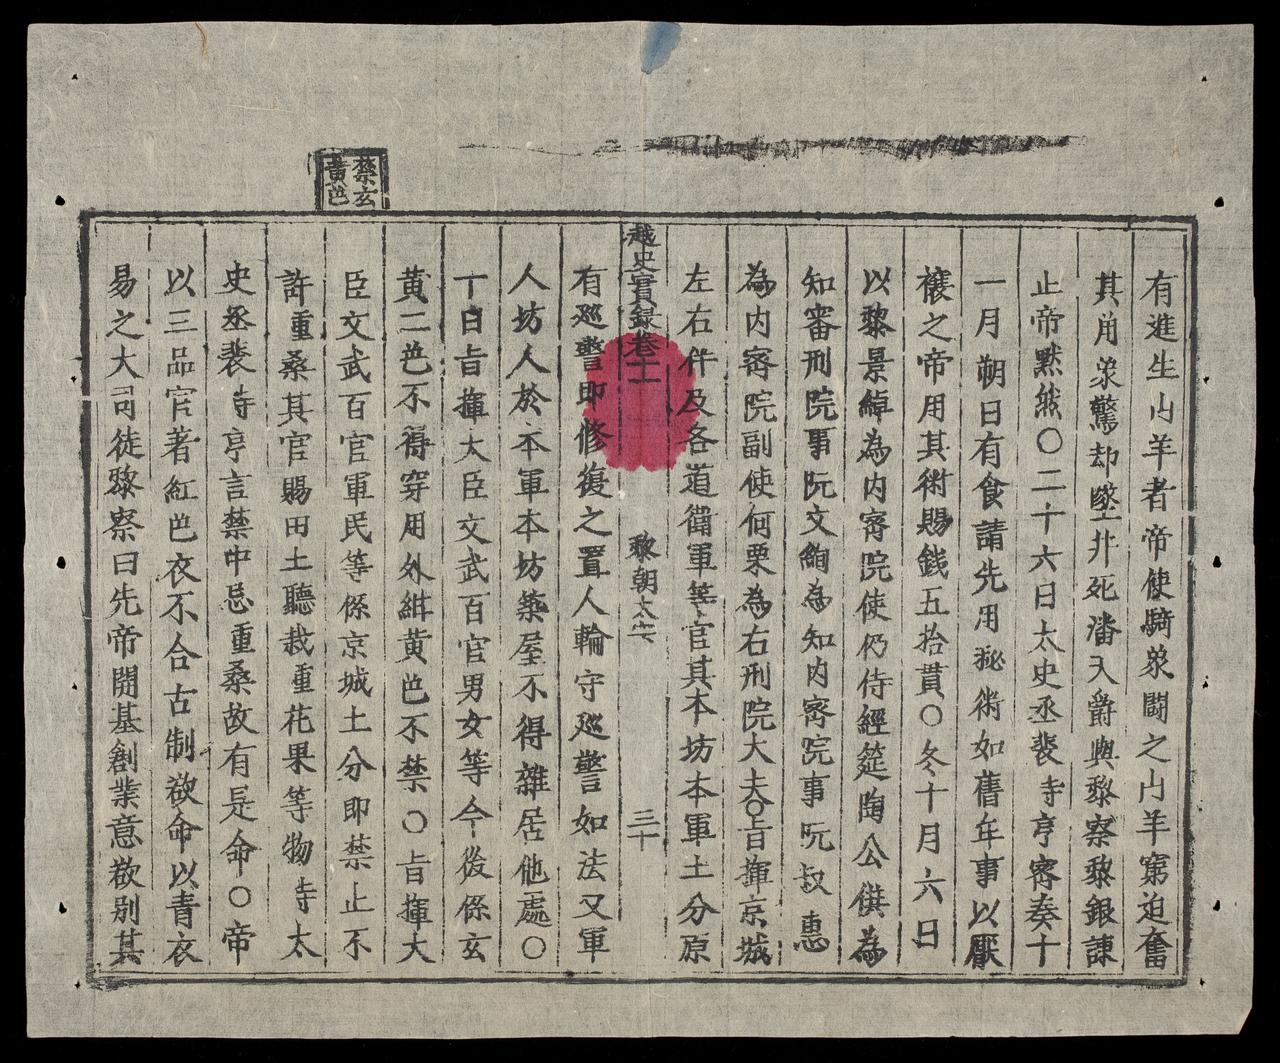 有進生山羊者帝使騎象鬪之山羊窮迫奮
其角象驚却墜井死潘天爵與黎察黎銀諫
止帝默然〇二十六日太史丞裴時亨密奏十
一月朔日有食請先用秘術如舊年事以厭
禳之帝用其術賜錢五拾貫〇冬十月六日
以黎景綽為內密院使仍侍經筵陶公僎為
知審刑院事阮文絢為知內密院事阮叔惠
為內密院副使何栗為右刑院大夫〇旨揮京城
左右伴及各道衛軍等官其本坊本軍土分原
越史實錄卷十一
黎朝太宗
三十
有巡警即修復之置人輪守巡警如法又軍
人坊人於本軍本坊築屋不得雜居他處〇
十日旨揮大臣文武百官男女等今後係玄
黃二色不得穿用外紺黃色不禁〇旨揮大
臣文武百官軍民等係京城土分即禁止不
許重桑其官賜田土聽栽重花果等物時太
史丞裴時亨言禁中忌重桑故有是命〇帝
以三品官著紅色衣不合古制欲命以青衣
易之大司徒黎察曰先帝開基創業意欲別其
禁玄
黃色